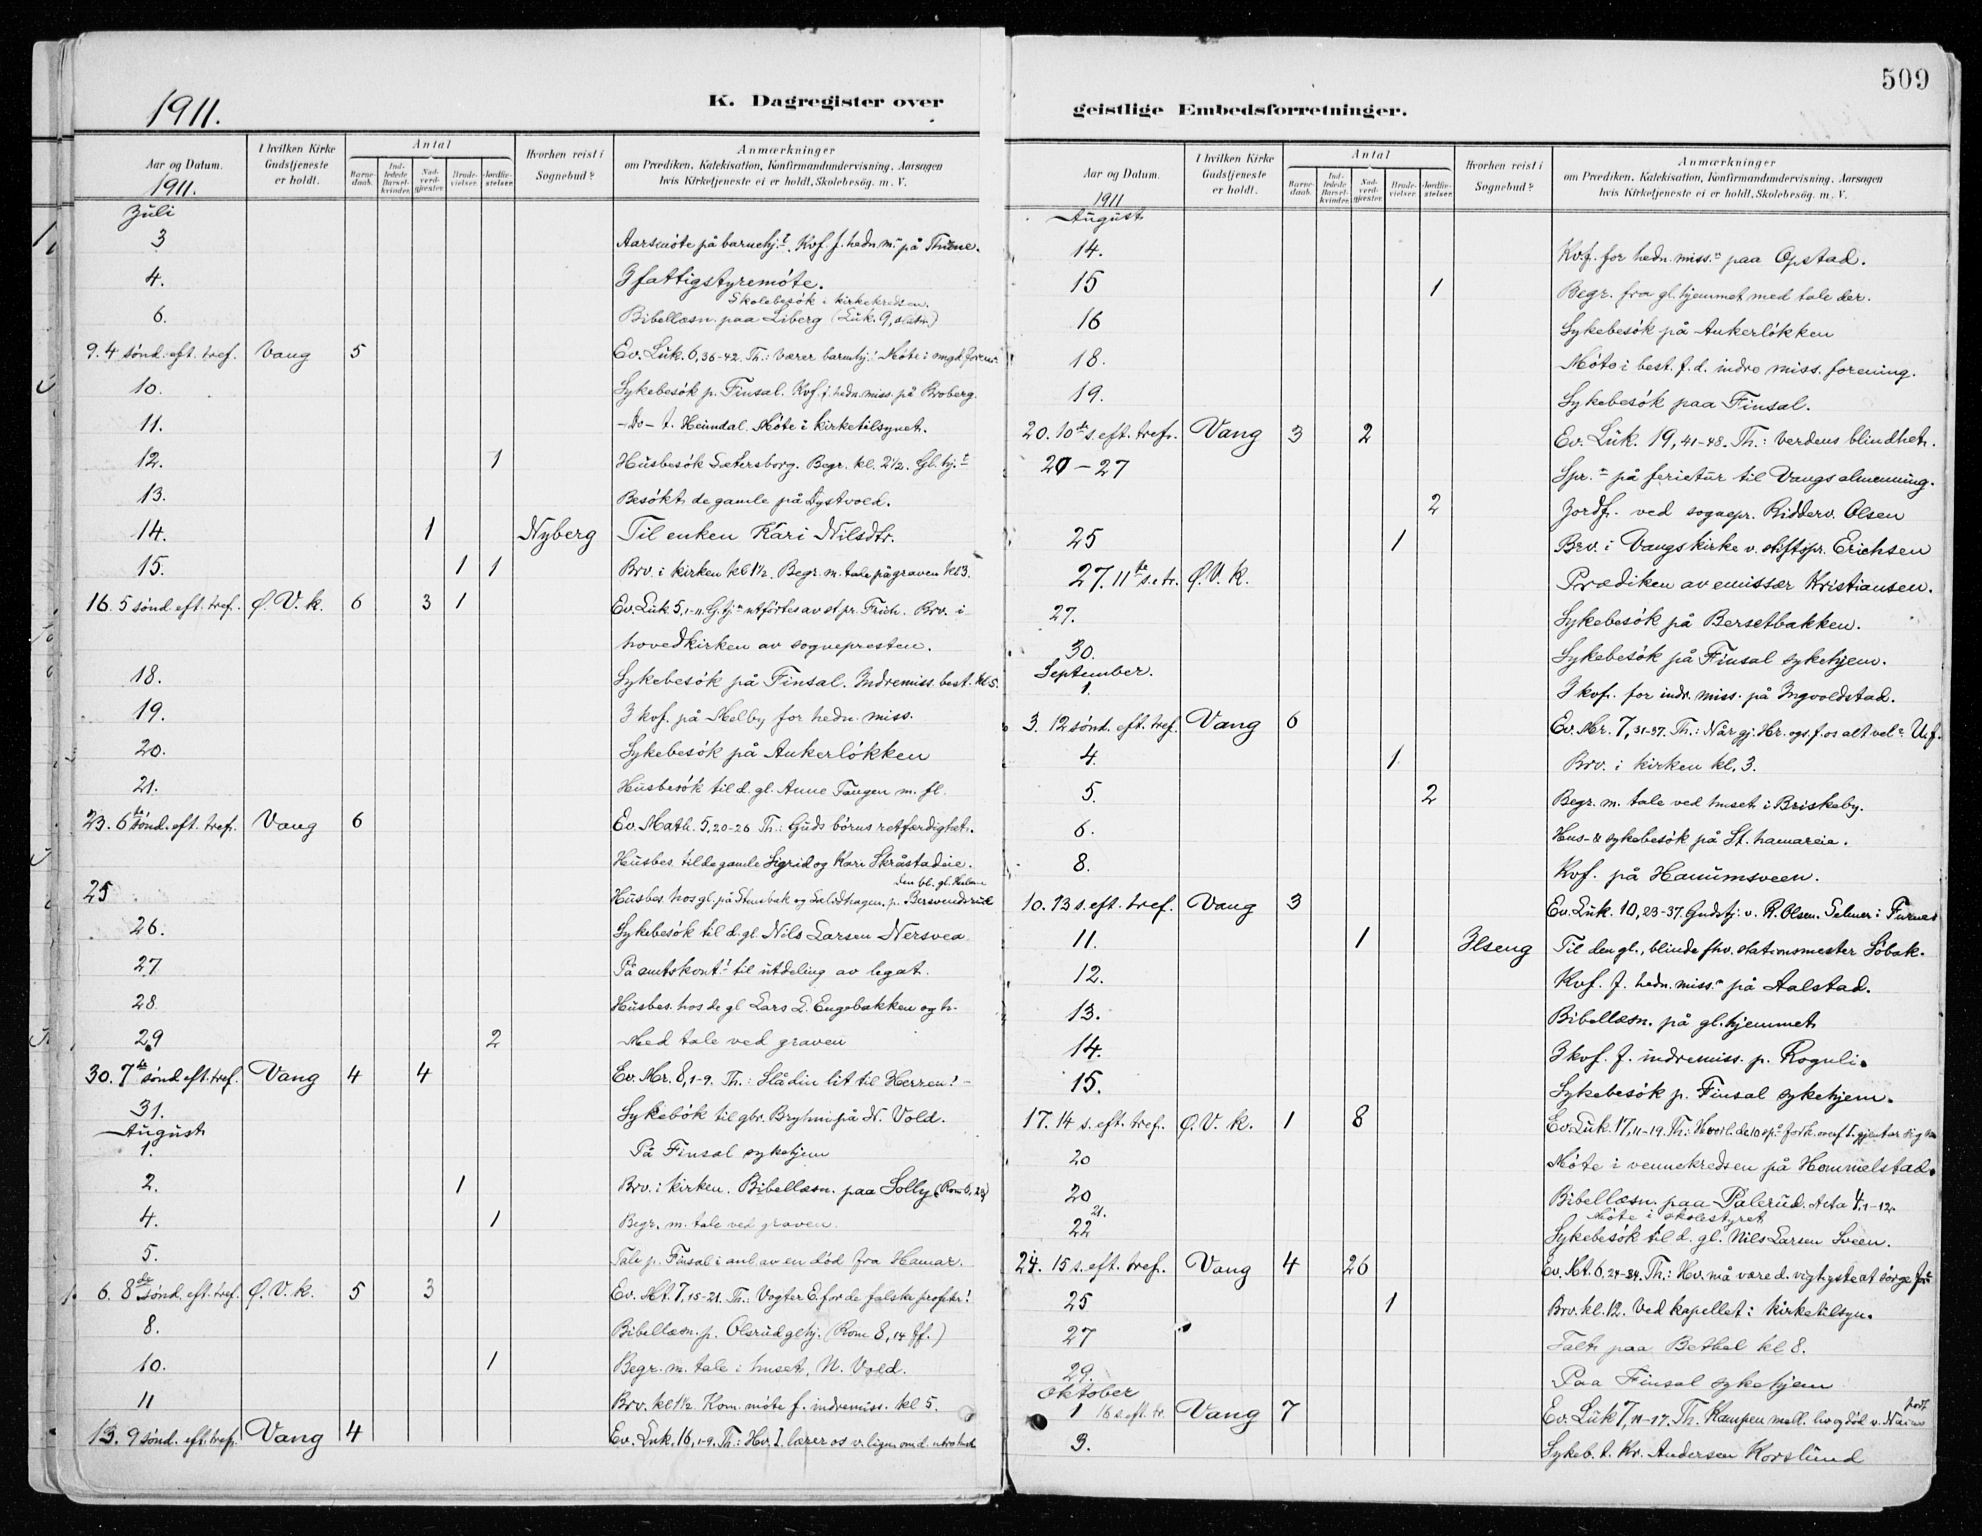 1911.
K. Dagregister over
Aar og Datum.
I hvilken Kirke Gudstjeneste er holdt.
Antal
Barne-daab.
Ind-ledede Barsel-kvinder.
Nad-verd-gjæster.
Brude-vielser.
Jordfæ-stelser.
Hvorhen reist i Sognebud?
Anmærkninger
om Prædiken, Katekisation, Konfirmandundervisning, Aarsagen
hvis Kirketjeneste ei er holdt, Skolebesøg. m. V.
1911.
Juli
3 Aarsmöte på barnehj.t. Kvf. f. hedn. m. på Thune.
4. I fattigstyremöte.
Skolebesök i kirkekredsen.
6. Bibellæsn. paa Liberg (Luk. 9,
9. 4 sönd. eft. tref. Vang 5 Ev. Luk. 6, 36-42. Th.: Værer barmhj.! Möte i
10. Sykebesök p. Finsal. Kvf. f. hedn. miss. på Broberg.
11. -Do- t. Heimdal. Möte i kirketilsynet.
12. 1 Husbesök Sætersborg. Begr. kl. 2½. Gl. hj.t
13. Besökt de gamle på Dystvold.
14. 1 Nyberg Til enken Kari Nilsdtr.
15. 1 1 Brv. i kirken kl 1½. Begr. m. tale på graven kl 3.
16. 5 sönd. eft. tref. Ø. V. k. 6 3 1 Ev. Luk. 5, 1-11. G.tj. utförtes av st. pr. Erich. Brv. i
hovedkirken av sognepresten.
18. Sykebesök på Finsal. Indremiss. best. kl 5.
19. I kvf. på Melby for hedn. miss.
20. Sykebesök på Ankerlökken
21. Husbesök til d. gl. Anne Tangen m. fl.
23. 6te sönd. eft. tref. Vang 6 Ev. Math. 5, 20-26 Th.: Guds börns retfærdighet.
Husbes. til de gamle Sigrid og Kari Skråstadeie.
25 Husbes. hos gl. på Stensbak og p. Bersvendsrud
26. Sykebesök til d. gl. Nils Larsen Nersvea
27 På amtskont.r til utdeling av legat.
28 Husbes. hos de gl Lars L. Engebakken og h.
29 2 Med tale ved graven
30. 7de sönd eft. tref. Vang 4 4 Ev. Mr. 8, 1-9. Th.: Slå din lit til Herren! -
31. Sykebök til gbr. Bryhni på N. Vold.
August
1. På Finsal sykehjem
2. 1 Brv. i kirken. Bibellæsn. paa Solly (Rom 6,
4. 1 Begr. m. tale ved graven.
5. Tale p. Finsal i anl. av en död fra Hamar.
6. 8de sönd. eft. tref. Ø. V. k. 5 3 Ev. Mt. 7, 15-21. Th.: Vogter E. for de falske profeter!
8. Bibellæsn. p. Olsrud glhj. (Rom 8, 14 ff.)
10. 1 Begr. m. tale i huset, N. Vold.
11 Brv. kl 1½. Kom. möte f. indremiss. kl 5.
13. 9 sönd. eft. tref. Vang 4 Ev. Luk. 16, 1-9. Th.: Hv. I. lærer os v. lign. om d. utro
509
geistlige Embedsforretninger.
Aar og Datum.
I hvilken Kirke Gudstjeneste er holdt.
Antal
Barne-daab.
Ind-ledede Barsel-kvinder.
Nad-verd-gjæster.
Brude-vielser.
Jordfæ-stelser.
Hvorhen reist i Sognebud?
Anmærkninger
om Prædiken, Katekisation, Konfirmandundervisning, Aarsagen
hvis Kirketjeneste ei er holdt, Skolebesög. m. V.
1911
August
14. Kvf. for hedn. miss.n paa Opstad.
15 1 Begr. fra gl. hjemmet med tale der.
16 Sykebesök på Ankerlökken
18. Möte i best. f. d. indre miss. forening.
19. Sykebesök paa Finsal.
20. 10de s. eft. tref. Vang 3 2 Ev. Luk. 19, 41-48. Th.: Verdens blindhet.
20 - 27 Spr.n på ferietur til Vangs almenning.
2 Jordf. ved sognepr. Ridderv. Olsen
25 1 Brv. i Vangs kirke v. stiftspr. Erichsen
27. 11te s. e. tr. Ø. V. k. Prædiken av emissær Kristiansen.
27. Sykebesök på Bersetbakken.
30. Sykebesök på Finsal sykehjem.
September.
1. I kvf. for indr. miss. på Ingvoldstad.
3. 12 sönd. eft. tref. Vang 6 Ev. Mr. 7, 31-37. Th.: Når gj. Hr. ogs. f. os alt vel?
4. 1 Brv. i kirken kl. 3.
5. 2 Begr. m. tale ved huset i Briskeby.
6. Hus- & sykebesök på St. hamareie.
8. Kvf. på Hanumsveen.
10. 13 s. eft. tref. Vang 3 Ev. Luk. 10, 23-37. Gudstj. v. R. Olsen. Selmer i Furnes
11. 1 Ilseng Til den gl., blinde fhv. stationsmester Söbak.
12. Kvf. f. hedn. miss.n på Aalstad.
13. Bibellæsn. på gl. hjemmet
14. I kvf. f. indremiss. p. Roguli.
15. Sykebesök p. Finsal sykehjem.
17. 14 s. eft. tref. Ø. V. k. 1 8 Ev. Luk. 17, 11-19. Th.: Hvorl. de 10 sp.
20 Möte i vennekredsen på Hommelstad.
20 Bibellæsn. paa Palerud. Acta 4, 1-12.
21. Möte i skolestyret
22 Sykebesök til d. gl. Nils Larsen Sveen.
24. 15 s. eft. tref. Vang 4 26 Ev. Mt. 6, 24-34. Th.: Hv. må være d. vigtigste at sörge for
25 1 Brv. kl. 12. Ved kapellet i kirketilsyn.
27 Talt paa Bethel kl 8.
29. Paa Finsal sykehjem
Oktober
1 16 s. eft. tr. Vang 7 Ev. Luk 7, 11-17. Th. Kampen mell. liv og död v. Nains port
3. Sykeb. t. Kr. Andersen Korslund